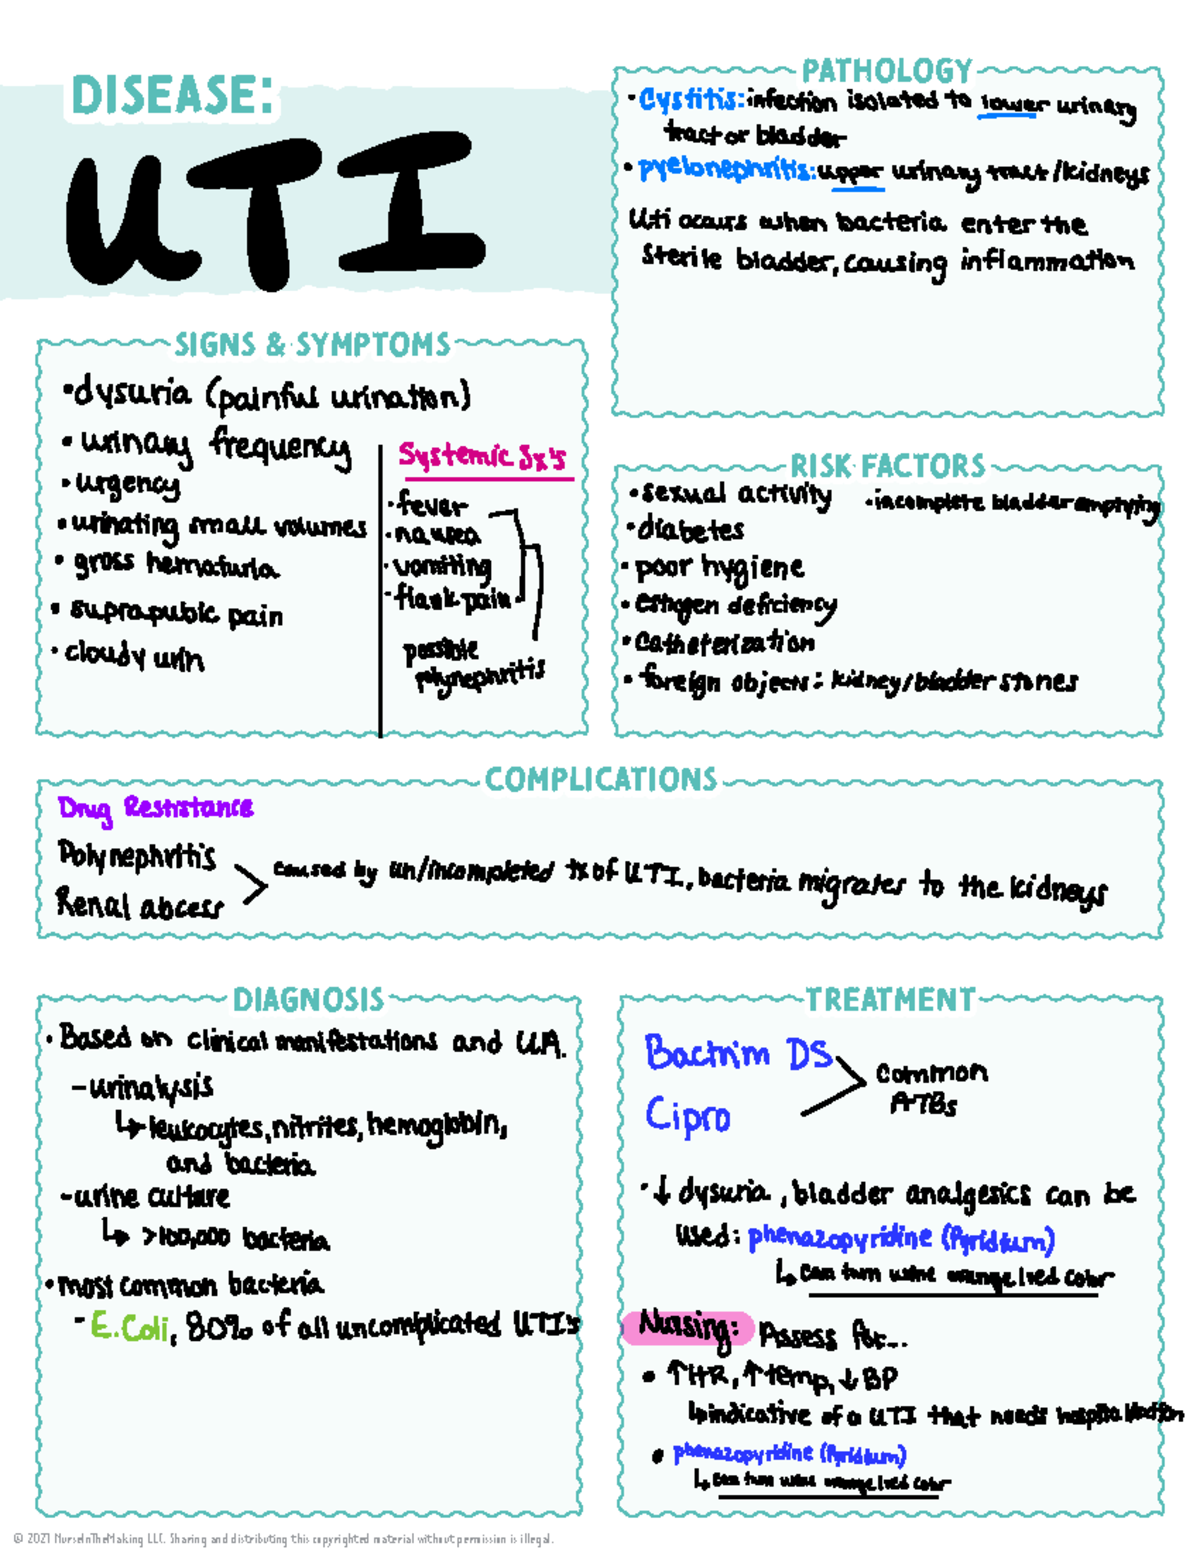 DISEASE:
UTI
PATHOLOGY
• Cystitis: infection isolated to lower urinary
tract or bladder
• pyelonephritis: upper urinary tract/kidneys
Uti occurs when bacteria enter the
sterile bladder, causing inflammation
SIGNS & SYMPTOMS
• dysuria (painful urination)
• urinary frequency
• urgency
• urinating small volumes
• gross hematuria
• suprapubic pain
• cloudy urin
Systemic Sx's
• fever
• nausea
• vomiting
• flank pain
possible
polynephritis
RISK FACTORS
• sexual activity • incomplete bladder emptying
• diabetes
• poor hygiene
• estrogen deficiency
• catheterization
• foreign objects: kidney/bladder stones
COMPLICATIONS
Drug Resistance
Polynephritis
Renal abcess
caused by un/incompleted tx of UTI, bacteria migrates to the kidneys
DIAGNOSIS
• Based on clinical manifestations and UA.
- urinalysis
↳ leukocytes, nitrites, hemoglobin,
and bacteria
- urine culture
↳ >100,000 bacteria
• most common bacteria
- E.Coli, 80% of all uncomplicated UTI's
TREATMENT
Bactrim DS
Cipro
common
ATBs
• ↓ dysuria, bladder analgesics can be
used: phenazopyridine (Pyridium)
↳ can turn urine orange/red color
Nursing: Assess for...
• ↑HR, ↑temp, ↓BP
↳ indicative of a UTI that needs hospitalization
• phenazopyridine (Pyridium)
↳ can turn urine orange/red color
© 2021 NurseInTheMaking LLC. Sharing and distributing this copyrighted material without permission is illegal.